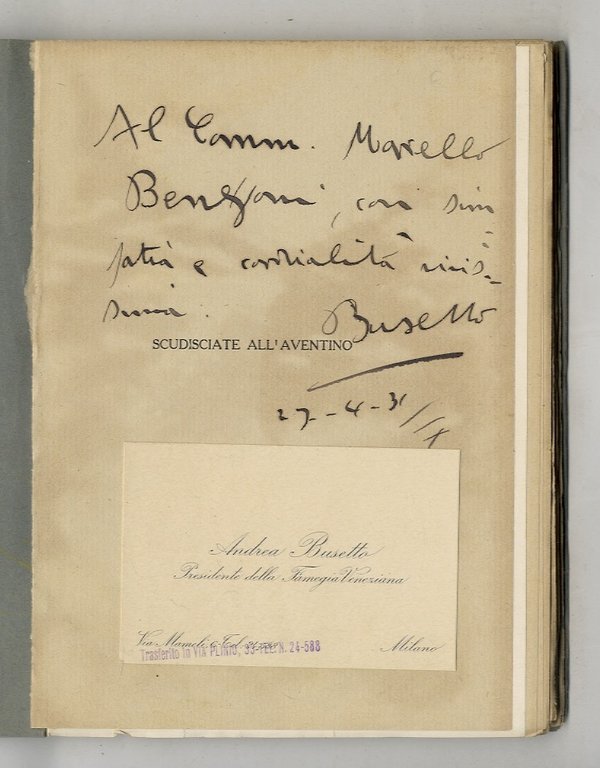 Al Comm. Marcello
Benzoni, con sim
patia e cordialità vivis-
sima.
Busetto
SCUDISCIATE ALL'AVENTINO
27-4-31/IX
Andrea Busetto
Presidente della Famegia Veneziana
Via Mameli Tel.
Milano
Trasferito in VIA PLINIO, 33-TEL. N. 24-588